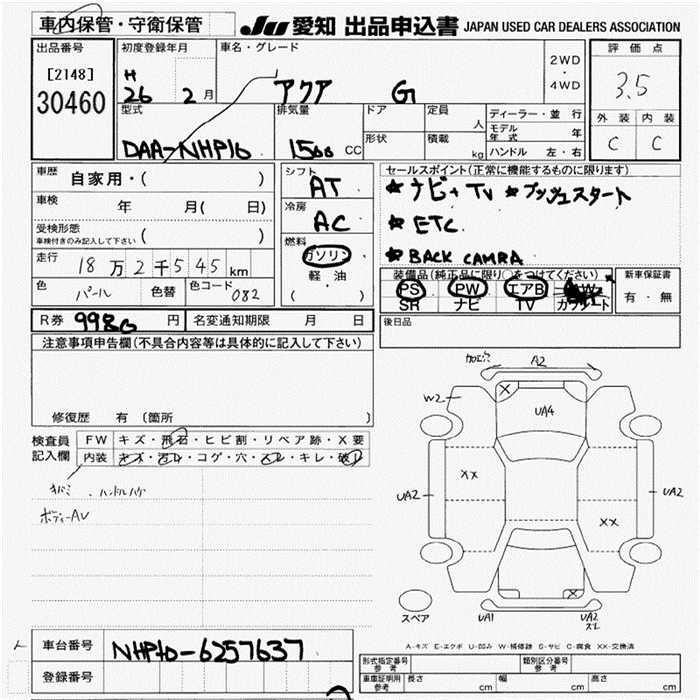 車内保管・守衛保管 JU 愛知 出品申込書 JAPAN USED CAR DEALERS ASSOCIATION
出品番号 初度登録年月 車名・グレード 評価点
[2148] H 2WD
・
30460 26 2月 アクア G 4WD 3.5
型式 排気量 ドア 定員 ディーラー・並行 外装 内装
人 モデル年式 年
DAA-NHP10 1500 CC 形状 積載 kg ハンドル 左・右 C C
車歴 自家用・( ) シフト AT セールスポイント(正常に機能するものに限ります)
★ナビ+TV ★プッシュスタート
車検 年 月( 日) 冷房 AC
★ETC
受検形態 ( )
車検付きのみ記入して下さい
燃料 ガソリン ★BACK CAMRA
走行 18万2千545km 軽・油 装備品(純正品に限り○をつけてください) 新車保証書
色 パール 色替 色コード 082 ( ) PS PW エアB AW 有・無
SR ナビ TV カワシート
R券 9980円 名変通知期限 月 日 後日品
注意事項申告欄(不具合内容等は具体的に記入して下さい)
修復歴 有 (箇所 )
検査員 FW キズ・飛石・ヒビ割・リペア跡・X要
記入欄 内装 キズ・汚レ・コゲ・穴・スレ・キレ・破レ
ハンドルハゲ
ボディーAU
A2
W2
UA4
XX
UA2
UA2
XX
スペア
UA1 UA2
スレ
A-キズ E-エクボ U-凹み W-補修跡 S-サビ C-腐食 XX-交換済
車台番号 NHP10-6257637
登録番号
形式指定番号 参考 類別区分番号 参考
車庫証明用 参考 長さ cm 幅 cm 高さ cm